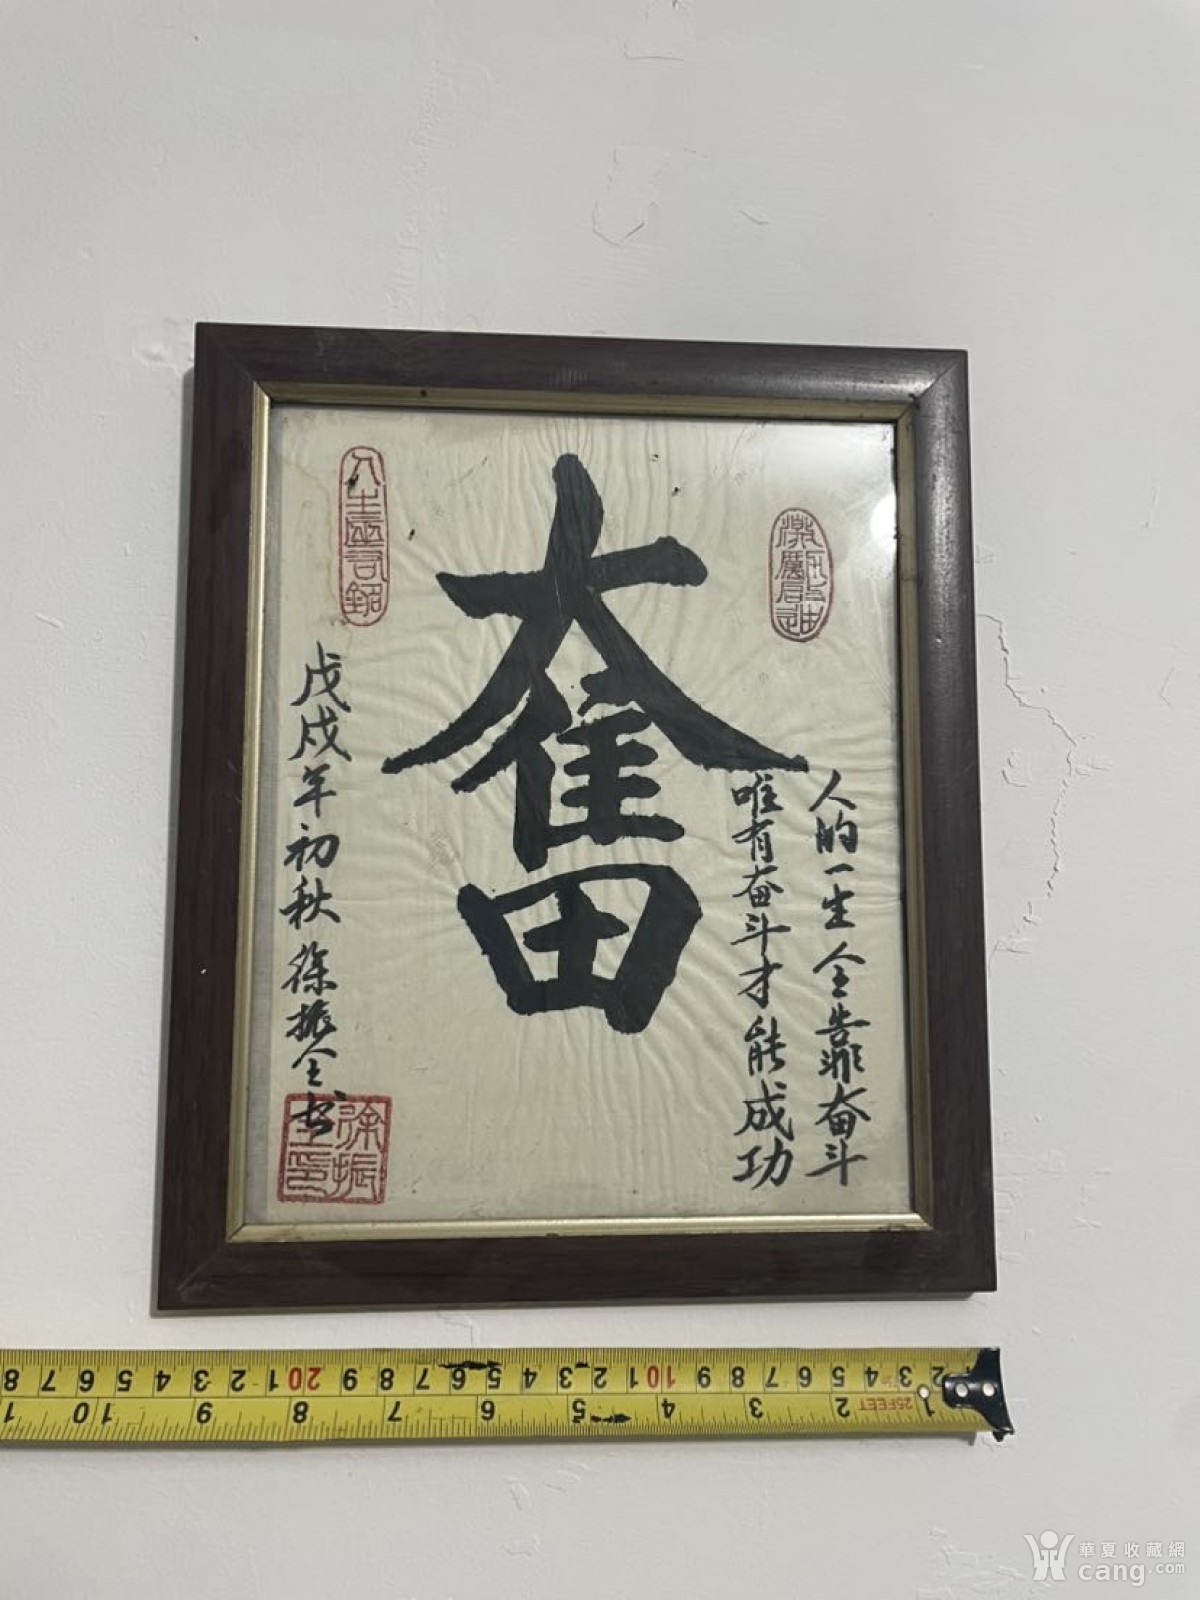 奮
人的一生全靠奋斗
唯有奋斗才能成功
戊戌年初秋徐振全书
人生座右銘
激厲后進
徐振全印
8 7 6 5 4 3 2 1 20 9 8 7 6 5 4 3 2 1 10 9 8 7 6 5 4 3 2
1 10 9 8 7 6 5 4 3 2 25FEET 1
華夏收藏網
cang.com